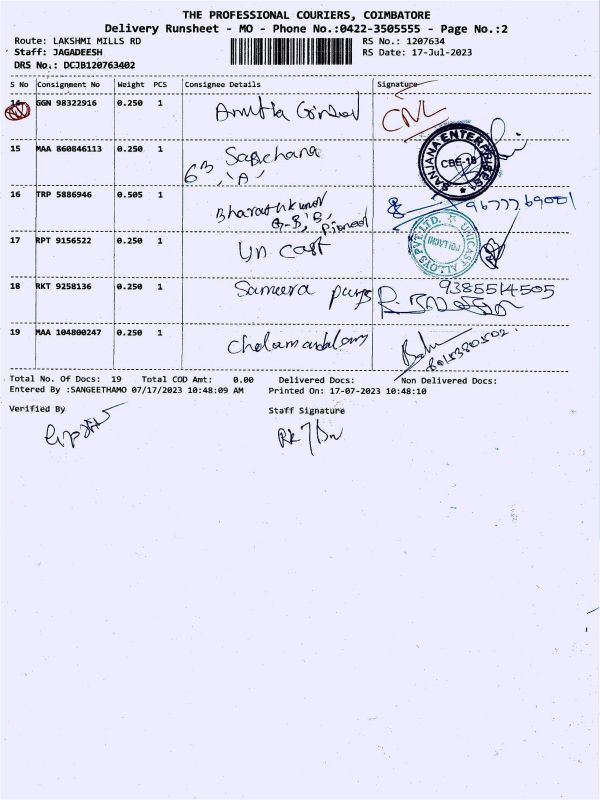 THE PROFESSIONAL COURIERS, COIMBATORE
Delivery Runsheet - MO - Phone No.:0422-3505555 - Page No.:2
Route: LAKSHMI MILLS RD
RS No.: 1207634
Staff: JAGADEESH
RS Date: 17-Jul-2023
DRS No.: DCJB120763402
S No Consignment No Weight PCS Consignee Details Signature
14 GGN 98322916 0.250 1
CNL
15 MAA 860846113 0.250 1
6B
'A'
SANJANA ENTERPRISES
CBE-18
16 TRP 5886946 0.505 1
9677769001
17 RPT 9156522 0.250 1 Un cast
UNICAST ALLOYS PVT LTD.
POLLACHI
18 RKT 9258136 0.250 1 Sameera
9385514505
19 MAA 104800247 0.250 1
Total No. Of Docs: 19 Total COD Amt: 0.00 Delivered Docs: Non Delivered Docs:
Entered By :SANGEETHAMO 07/17/2023 10:48:09 AM Printed On: 17-07-2023 10:48:10
Verified By Staff Signature